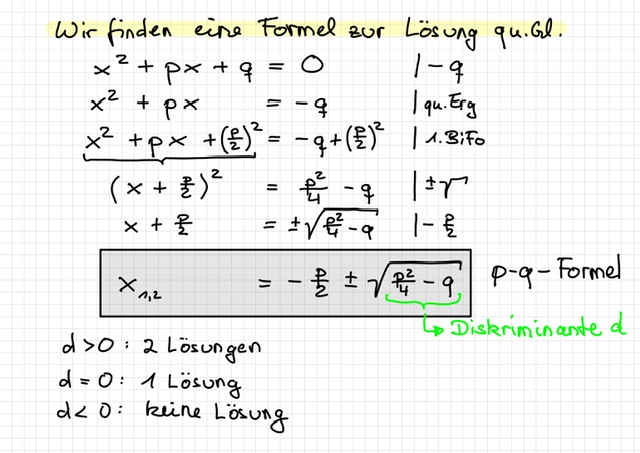 Wir finden eine Formel zur Lösung qu.Gl.
x² + px + q = 0 | -q
x² + px = -q | qu.Erg
x² + px + (p/2)² = -q + (p/2)² | 1.BiFo
(x + p/2)² = p²/4 - q | ±√
x + p/2 = ±√(p²/4 - q) | - p/2
x₁,₂ = - p/2 ± √(p²/4 - q) p-q-Formel
↳ Diskriminante d
d > 0 : 2 Lösungen
d = 0 : 1 Lösung
d < 0 : keine Lösung